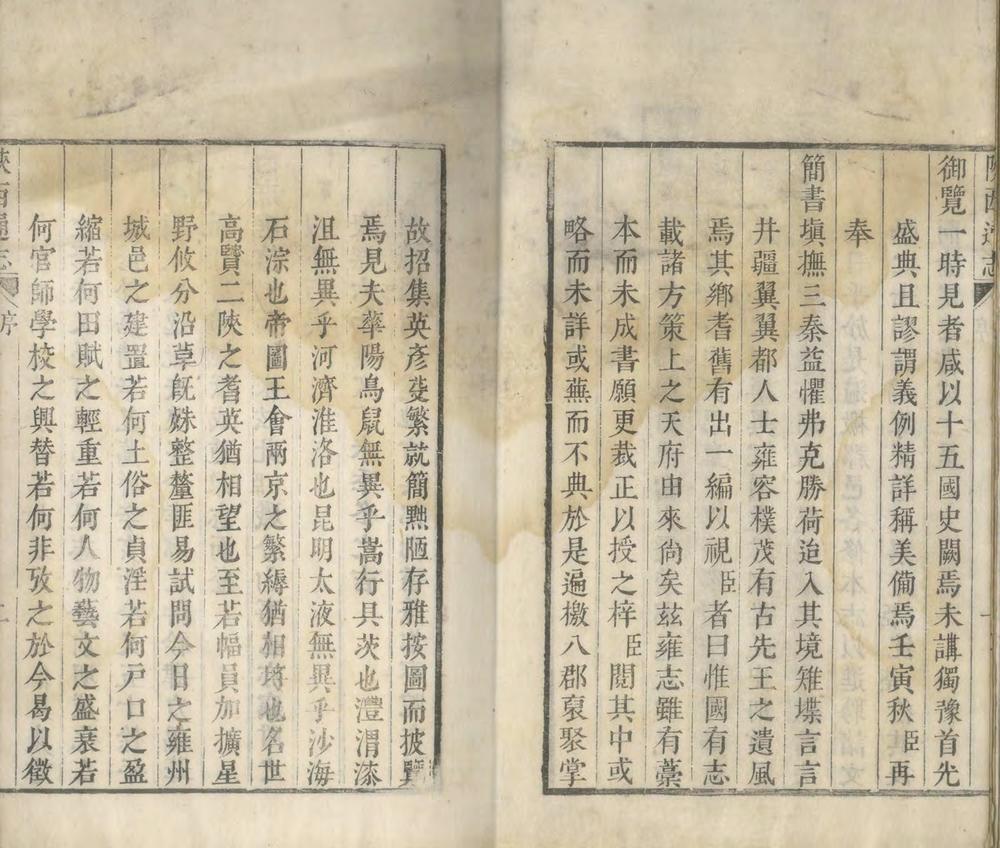 陝西通志
御覽一時見者咸以十五國史闕焉未講獨豫首光
盛典且謬謂義例精詳稱美備焉壬寅秋臣再
奉
簡書塡撫三秦益懼弗克勝荷迨入其境雉堞言言
井疆翼翼都人士雍容樸茂有古先王之遺風
焉其鄉耆舊有出一編以視臣者曰惟國有志
載諸方策上之天府由來尙矣玆雍志雖有藁
本而未成書願更裁正以授之梓臣閱其中或
略而未詳或蕪而不典於是遍檄八郡裒聚掌
故招集英彥芟繁就簡黜陋存雅按圖而披覽
焉見夫華陽鳥鼠無異乎嵩行具茨也灃渭漆
沮無異乎河濟淮洛也昆明太液無異乎沙海
石淙也帝圖王會兩京之繁縟猶相埒也名世
高賢二陝之耆英猶相望也至若幅員加擴星
野攸分沿革旣殊整釐匪易試問今日之雍州
城邑之建置若何土俗之貞淫若何戶口之盈
縮若何田賦之輕重若何人物藝文之盛衰若
何官師學校之興替若何非攷之於今曷以徵
陝西通志 序 二